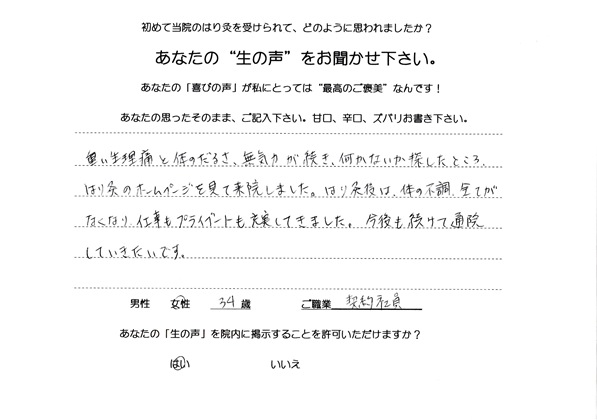 初めて当院のはり灸を受けられて、どのように思われましたか？
あなたの“生の声”をお聞かせ下さい。
あなたの「喜びの声」が私にとっては“最高のご褒美”なんです！
あなたの思ったそのまま、ご記入下さい。甘口、辛口、ズバリお書き下さい。
重い生理痛と体のだるさ、無気力が続き、何かないか探したところ、
はり灸のホームページを見て来院しました。はり灸後は、体の不調、全てが
なくなり、仕事もプライベートも充実してきました。今後も続けて通院
していきたいです。
男性 女性 34歳 ご職業 契約社員
あなたの「生の声」を院内に掲示することを許可いただけますか？
はい いいえ